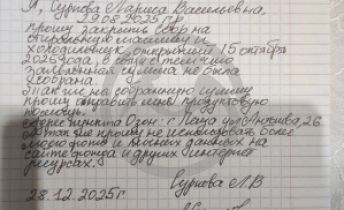 Я, Сурнева Лариса Васильевна,
29.08.2025 г.р.
прошу закрыть сбор на
стиральную машинку и
холодильник, открытый 15 октября
2025 года, в связи с тем что
заявленная сумма не была
собрана.
Так же на собранную сумму
прошу отправить мне продуктовую
помощь.
Озон: г
26
а так же прошу не использовать более
мои фото и личных данных на
сайте фонда и других интернет
ресурсах.
Сурнева Л.В
28.12.2025г